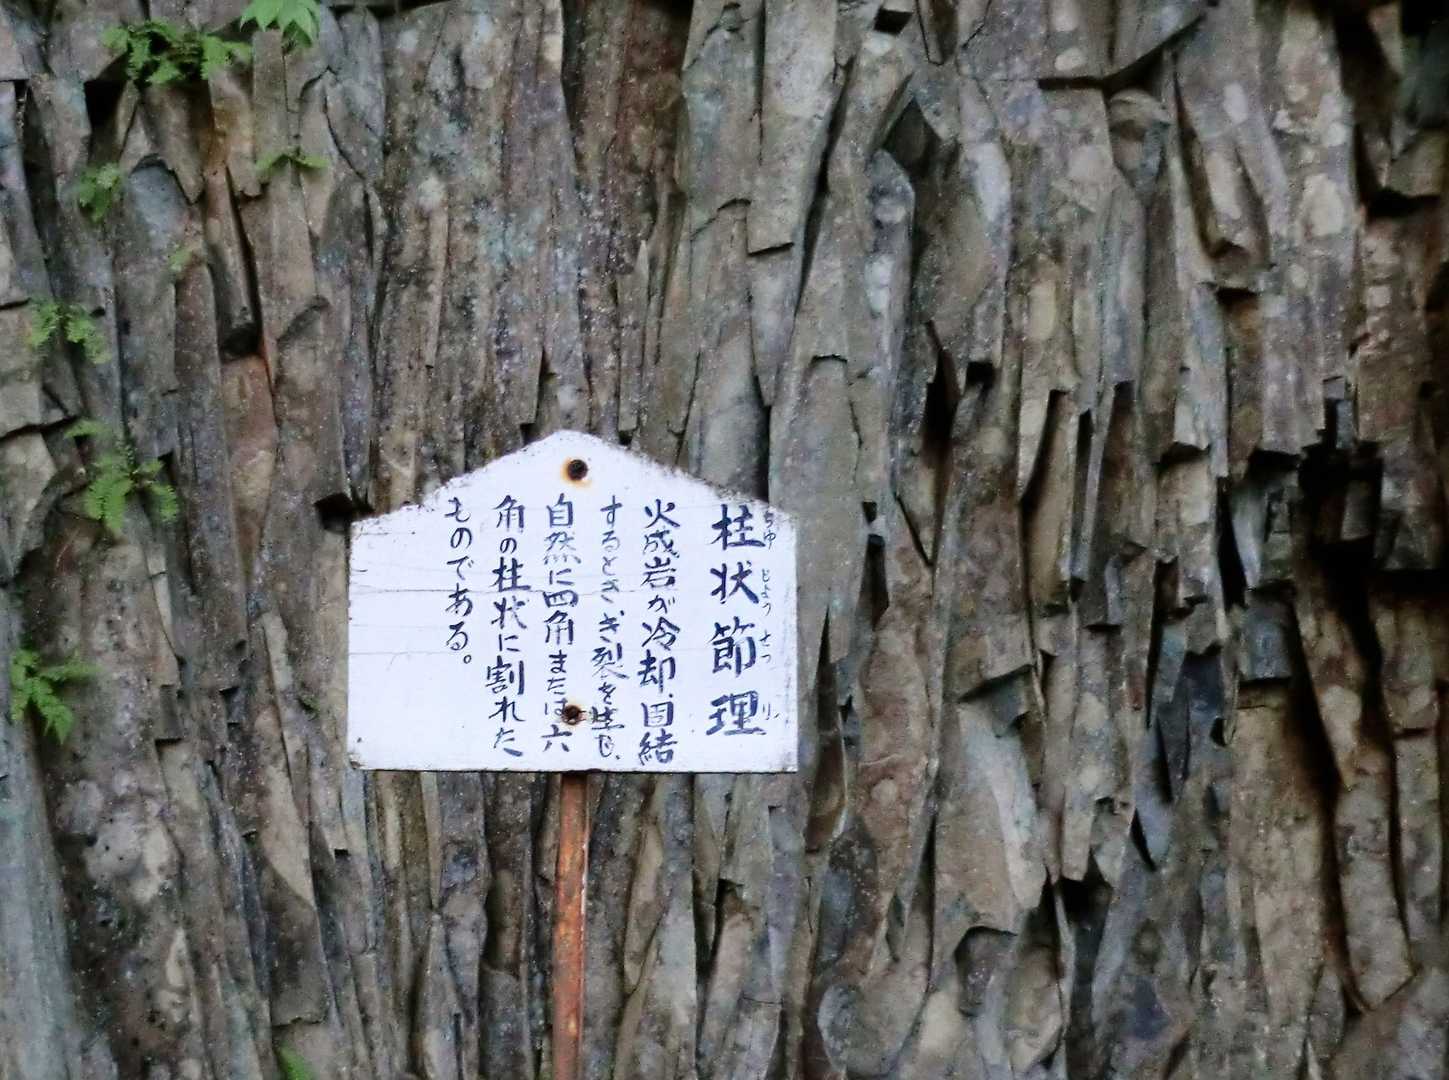 柱状節理
ちゆ じよう せつ り
火成岩が冷却、固結
するとき、き裂を生じ、
自然に四角または六
角の柱状に割れた
ものである。